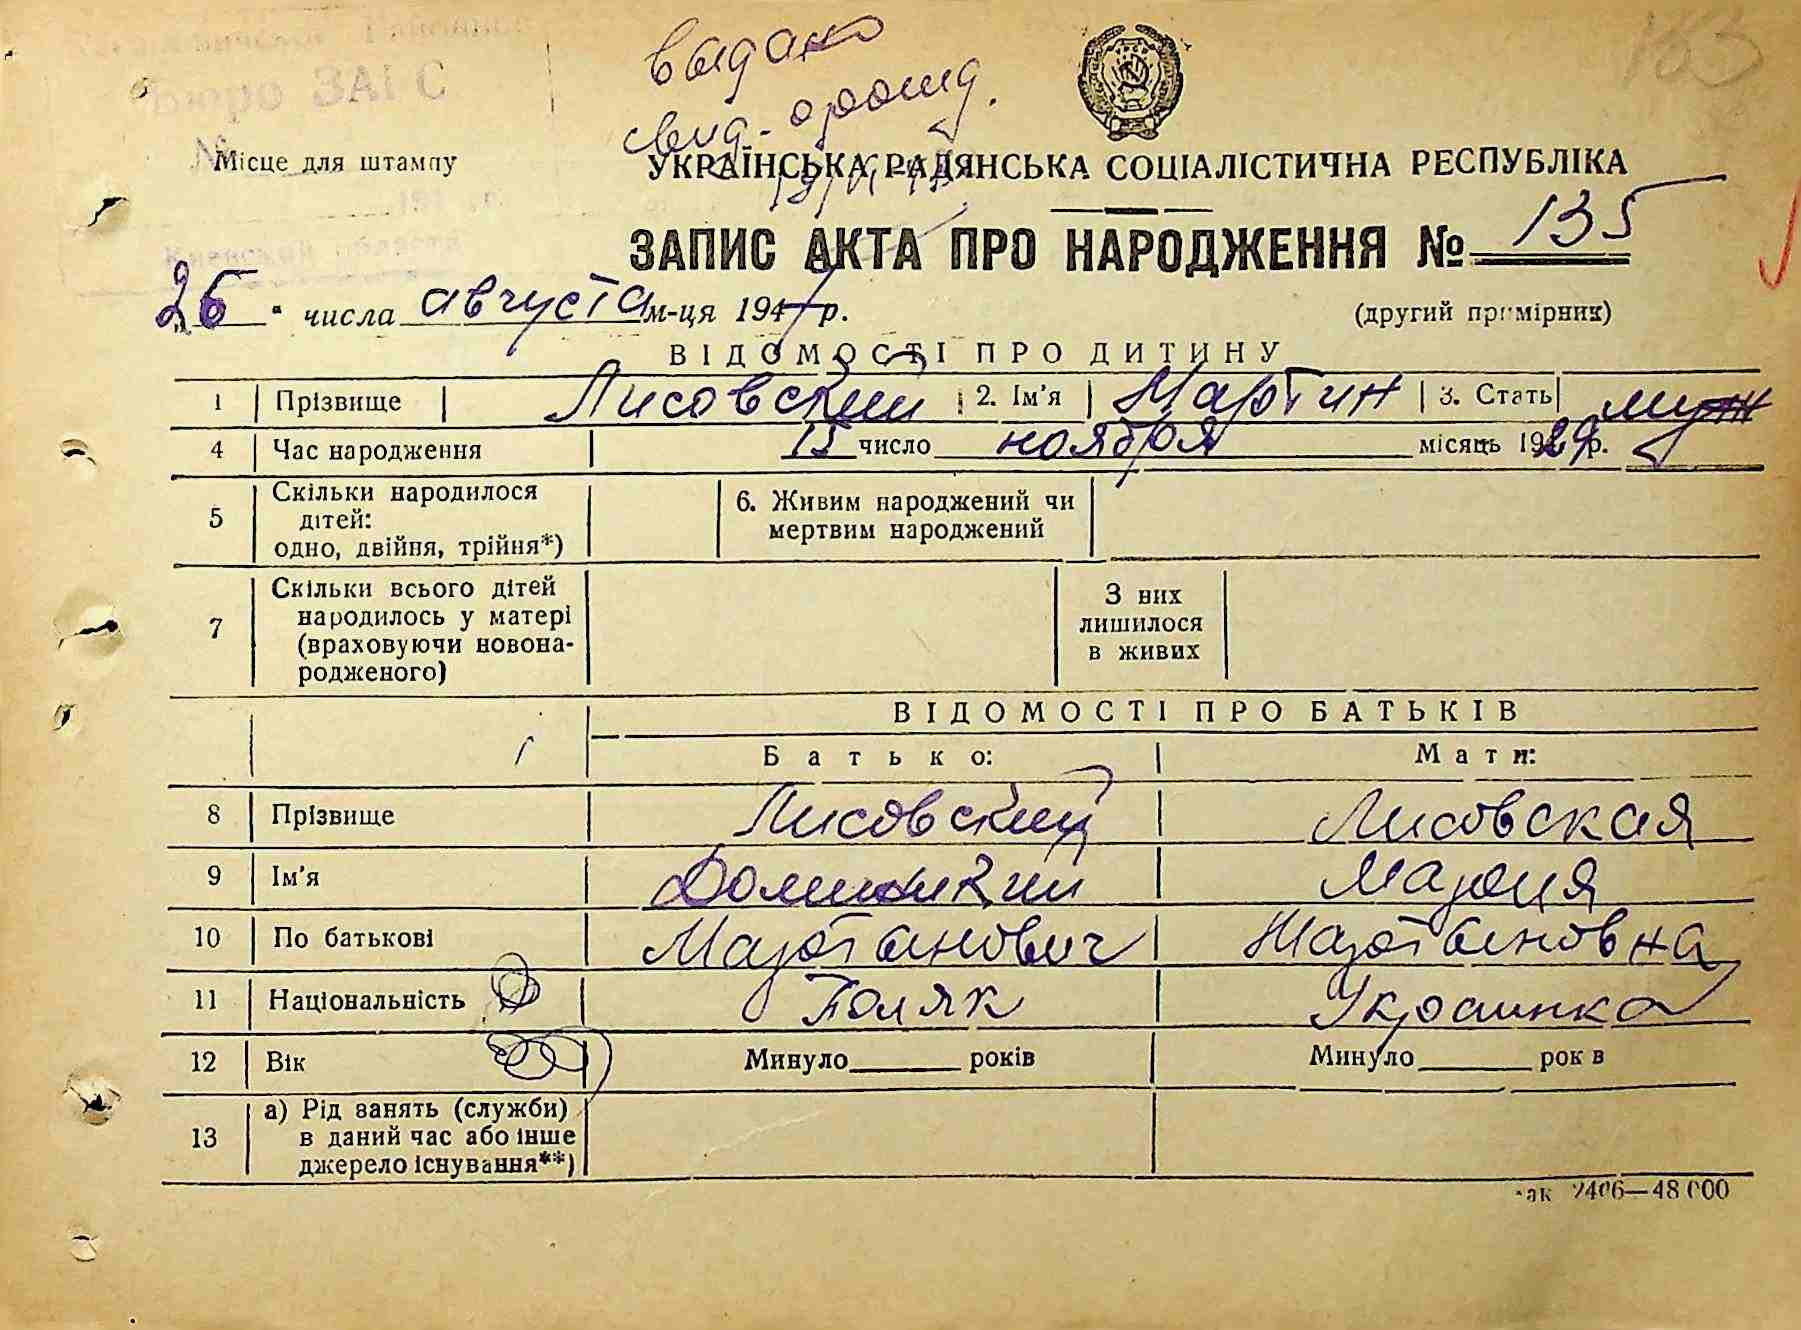 153
Бюро ЗАГС
№
Київської області
видано
свид. о рожд.
Місце для штампу
УКРАЇНСЬКА РАДЯНСЬКА СОЦІАЛІСТИЧНА РЕСПУБЛІКА
ЗАПИС АКТА ПРО НАРОДЖЕННЯ № 135
26 " числа августа м-ця 1947 р.
(другий примірник)
ВІДОМОСТІ ПРО ДИТИНУ
1 Прізвище Лисовский 2. Ім'я Мартин 3. Стать муж
4 Час народження 15 число ноября місяць 1929 р.
5 Скільки народилося дітей: одно, двійня, трійня*) 6. Живим народжений чи мертвим народжений
7 Скільки всього дітей народилось у матері (враховуючи новонародженого) З них лишилося в живих
ВІДОМОСТІ ПРО БАТЬКІВ
Батько: Мати:
8 Прізвище Лисовский Лисовская
9 Ім'я Доминикий Мария
10 По батькові Мартинович Мартиновна
11 Національність Поляк Украинка
12 Вік Минуло ______ років Минуло ______ рок в
13 а) Рід занять (служби) в даний час або інше джерело існування**)
ак 2406—48 000